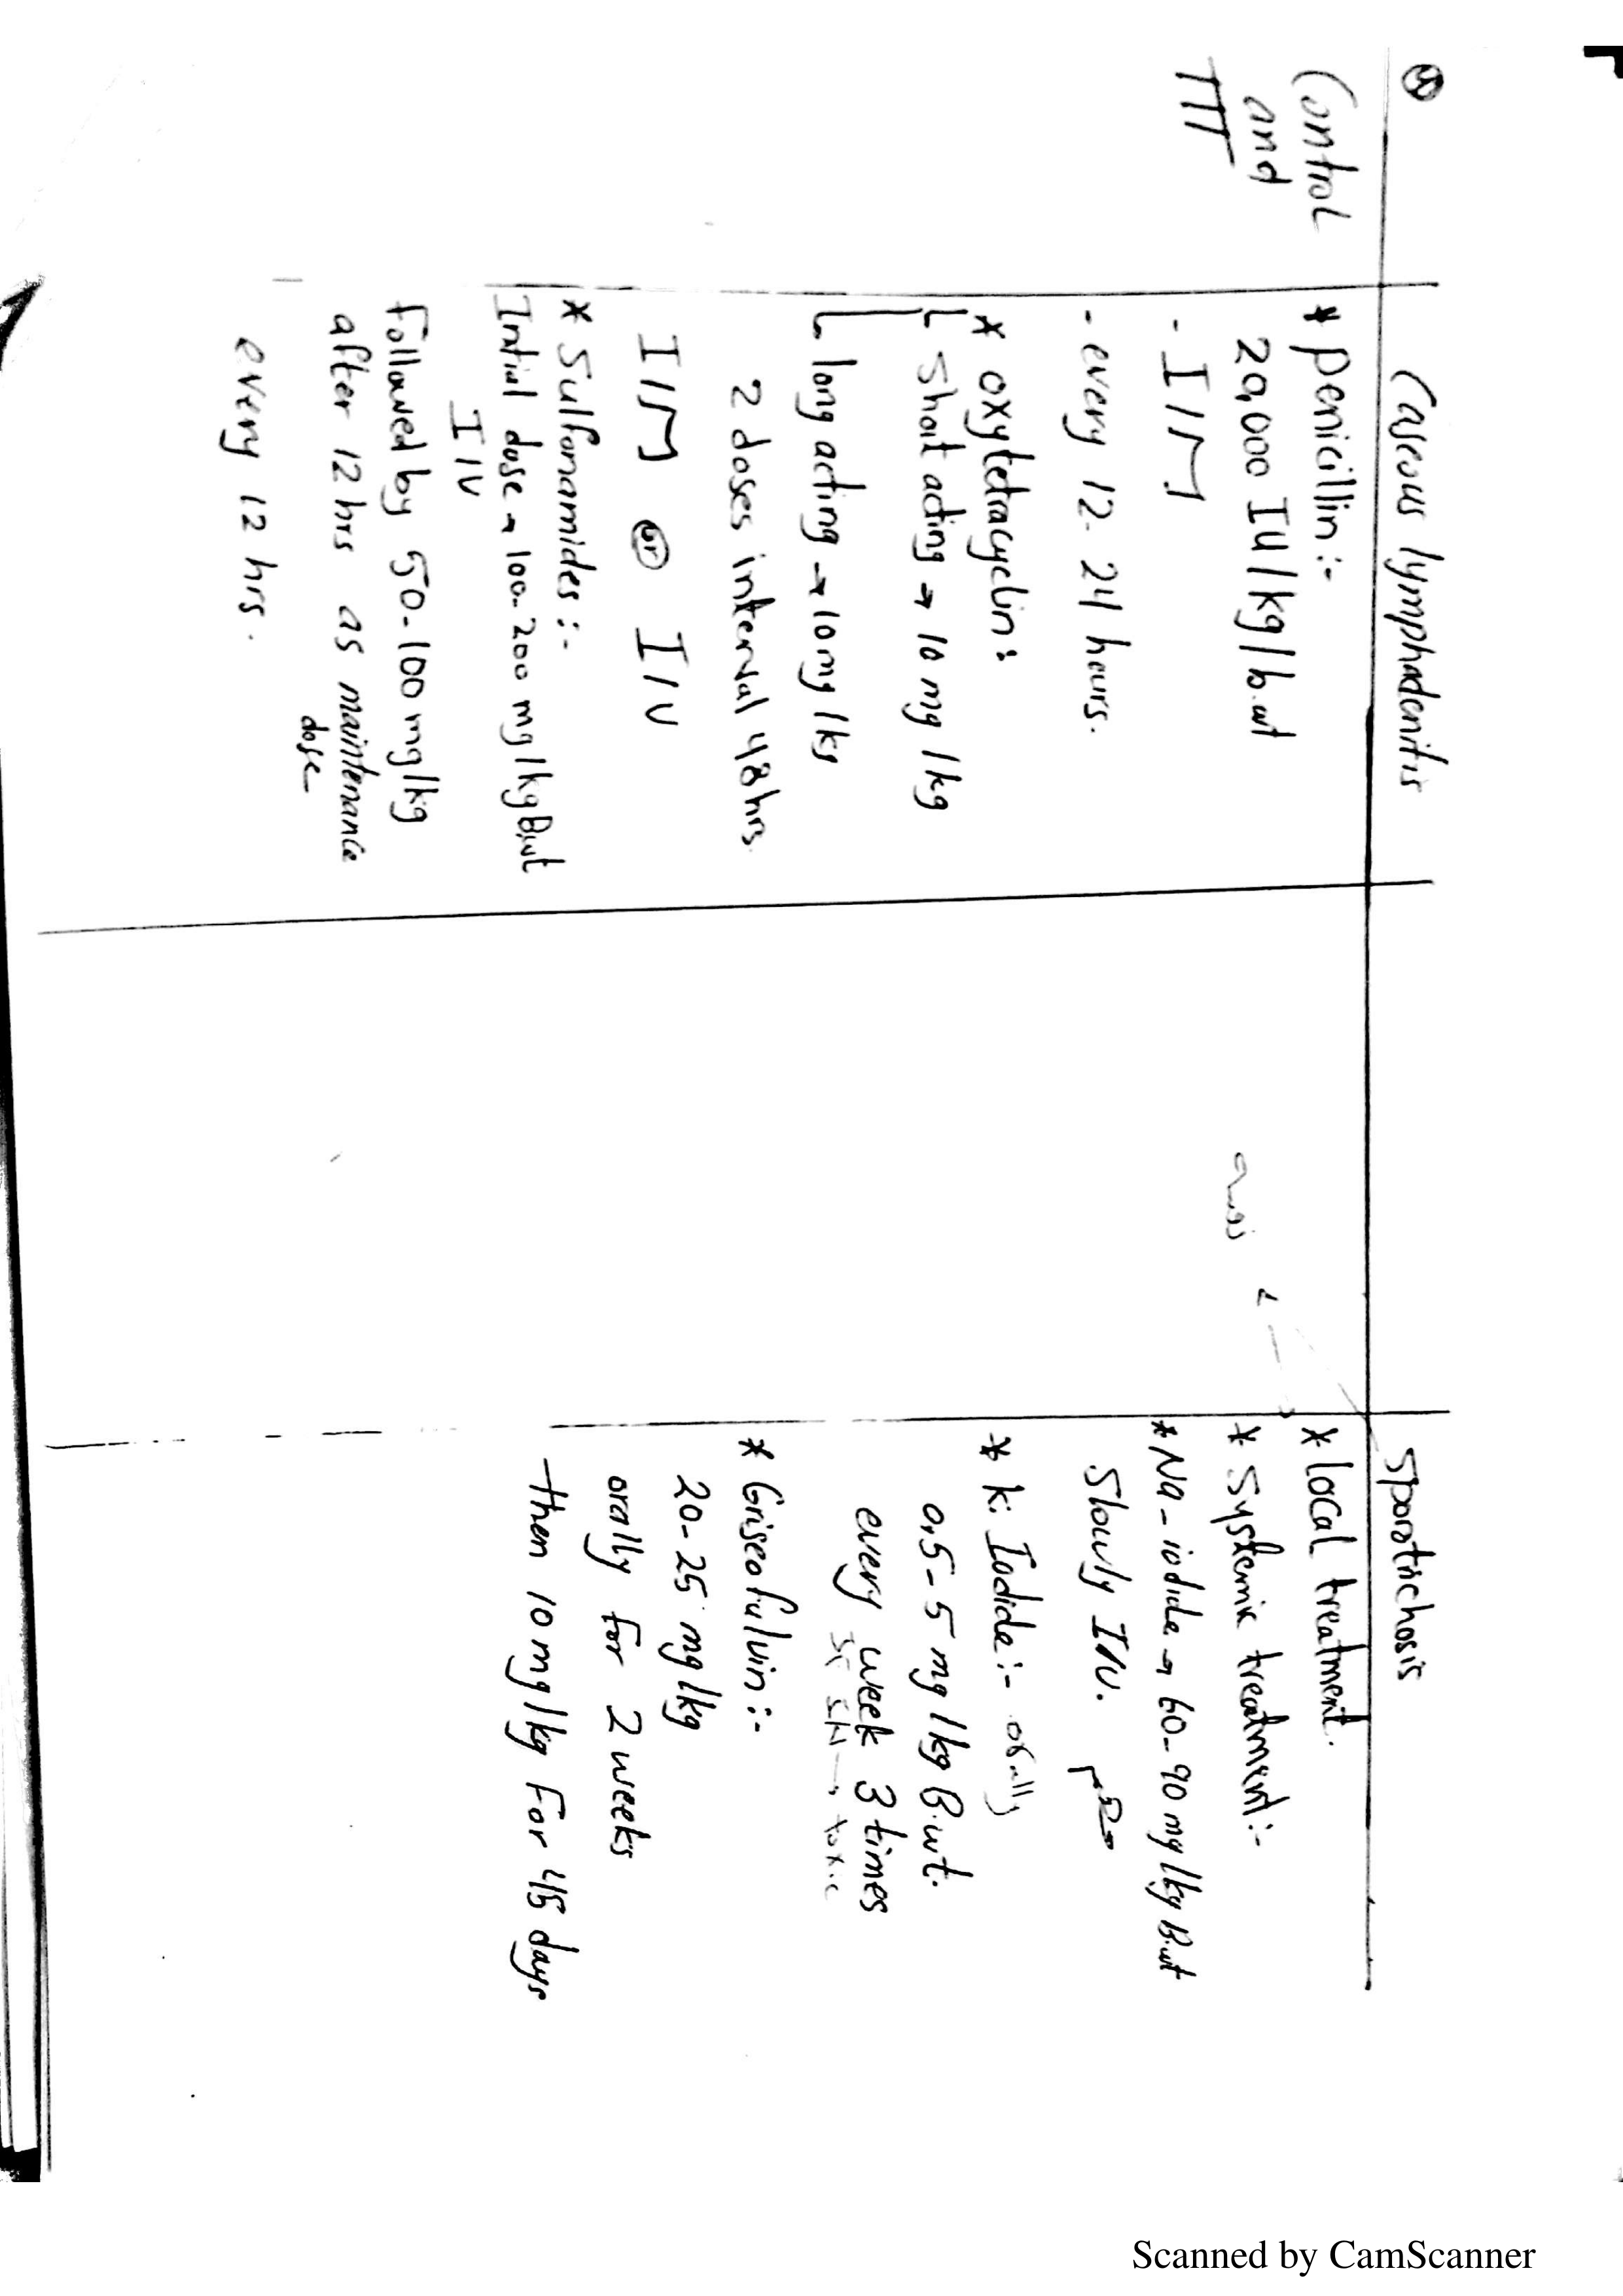 Control
and
TTT
Caseous lymphadenitis
* penicillin:-
20,000 IU/kg/b.wt
- I/M
- every 12-24 hours.
* oxytetracyclin:
Short acting → 10 mg/kg
long acting → 10mg/kg
2 doses interval 48hrs.
I/M or I/V
* Sulfonamides:-
Initial dose → 100-200 mg/kg B.wt
I/V
Followed by 50-100 mg/kg
after 12 hrs as maintenance
dose
every 12 hrs.
Sporotrichosis
* local treatment.
* Systemic treatment:-
* Na-iodide → 60-90 mg/kg B.wt
Slowly I/V.
* k. Iodide:- orally
0,5-5 mg/kg B.wt.
every week 3 times
toxic
* Griseofulvin:-
20-25 mg/kg
orally for 2 weeks
then 10mg/kg For 45 days
Scanned by CamScanner